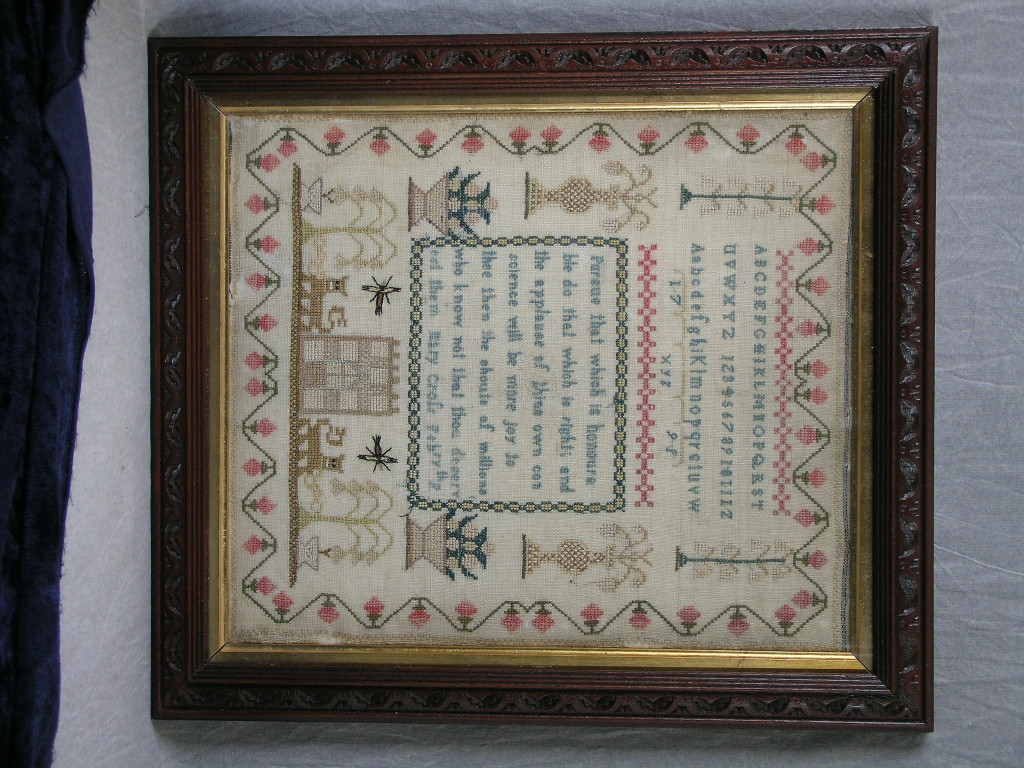 ABCDEFGHIKLMNOPQRST
UVWXYZ 123 6789101112
Aabcdefghiklmnopqrstuvw
17 xyz
Pursue that which is honoura
ble do that which is right; and
the applause of thine own con
science will be more joy to
thee then the shouts of millions
who know not that thou deserv
est them Mary